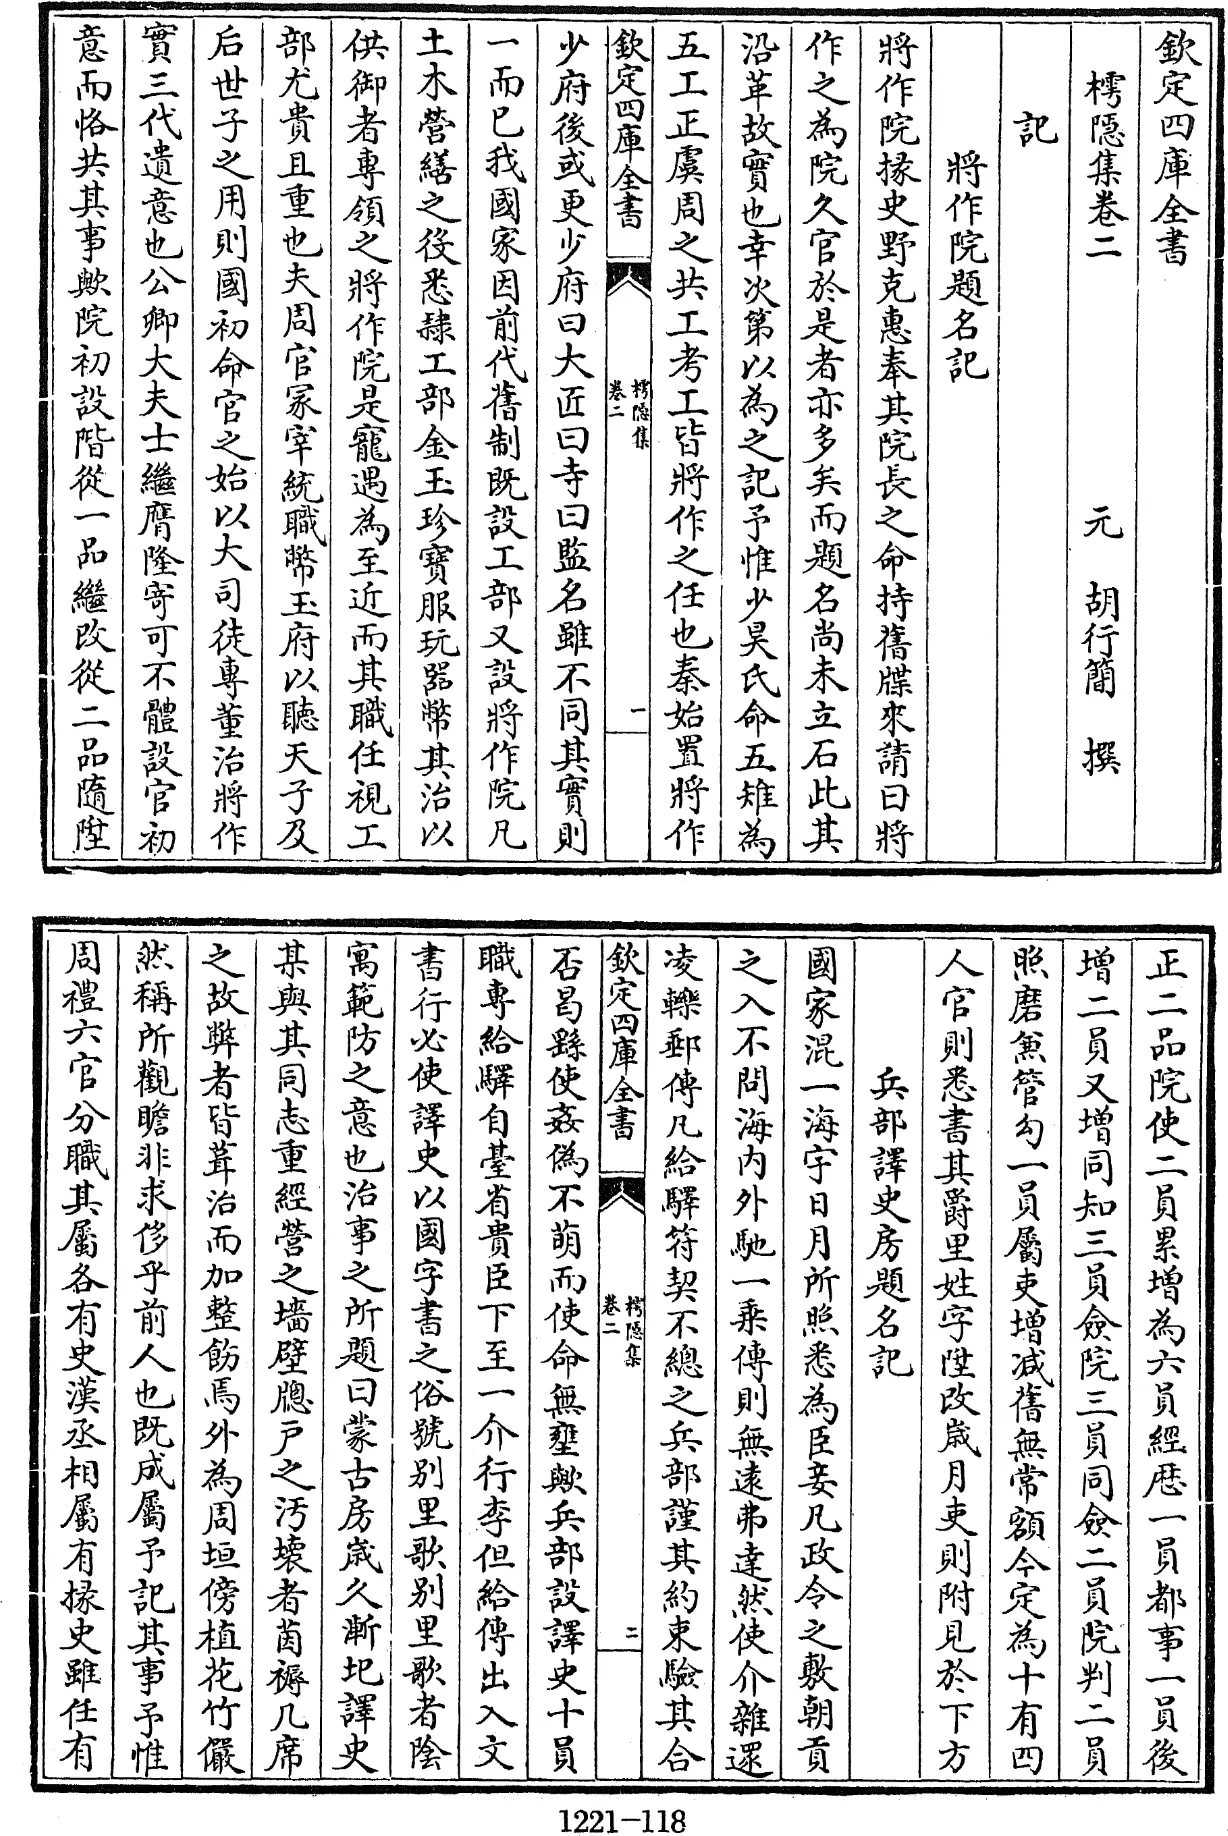 欽定四庫全書
樗隱集卷二
元 胡行簡 撰
記
將作院題名記
將作院掾史野克惠奉其院長之命持舊牒來請曰將
作之為院久官於是者亦多矣而題名尚未立石此其
沿革故實也幸次第以為之記予惟少昊氏命五雉為
五工正虞周之共工考工皆將作之任也秦始置將作
欽定四庫全書
樗隱集
卷二
一
少府後或更少府曰大匠曰寺曰監名雖不同其實則
一而已我國家因前代舊制既設工部又設將作院凡
土木營繕之役悉隸工部金玉珍寶服玩器幣其治以
供御者專領之將作院是寵遇為至近而其職任視工
部尤貴且重也夫周官冢宰統職幣玉府以聽天子及
后世子之用則國初命官之始以大司徒專董治將作
實三代遺意也公卿大夫士繼膺隆寄可不體設官初
意而恪共其事歟院初設階從一品繼改從二品隨陞
正二品院使二員累增為六員經歷一員都事一員後
增二員又增同知三員僉院三員同僉二員院判二員
照磨兼管勾一員屬吏增減舊無常額今定為十有四
人官則悉書其爵里姓字陞改歲月吏則附見於下方
兵部譯史房題名記
國家混一海宇日月所照悉為臣妾凡政令之敷朝貢
之入不問海內外馳一乘傳則無遠弗達然使介雜遝
凌轢郵傳凡給驛符契不總之兵部謹其約束驗其合
欽定四庫全書
樗隱集
卷二
二
否曷繇使姦偽不萌而使命無壅歟兵部設譯史十員
職專給驛自臺省貴臣下至一介行李但給傳出入文
書行必使譯史以國字書之俗號別里歌別里歌者陰
寓範防之意也治事之所題曰蒙古房歲久漸圮譯史
某與其同志重經營之墻壁牕戶之汚壞者茵褥几席
之故弊者皆葺治而加整飭焉外為周垣傍植花竹儼
然稱所觀瞻非求侈乎前人也既成屬予記其事予惟
周禮六官分職其屬各有史漢丞相屬有掾史雖任有
1221-118